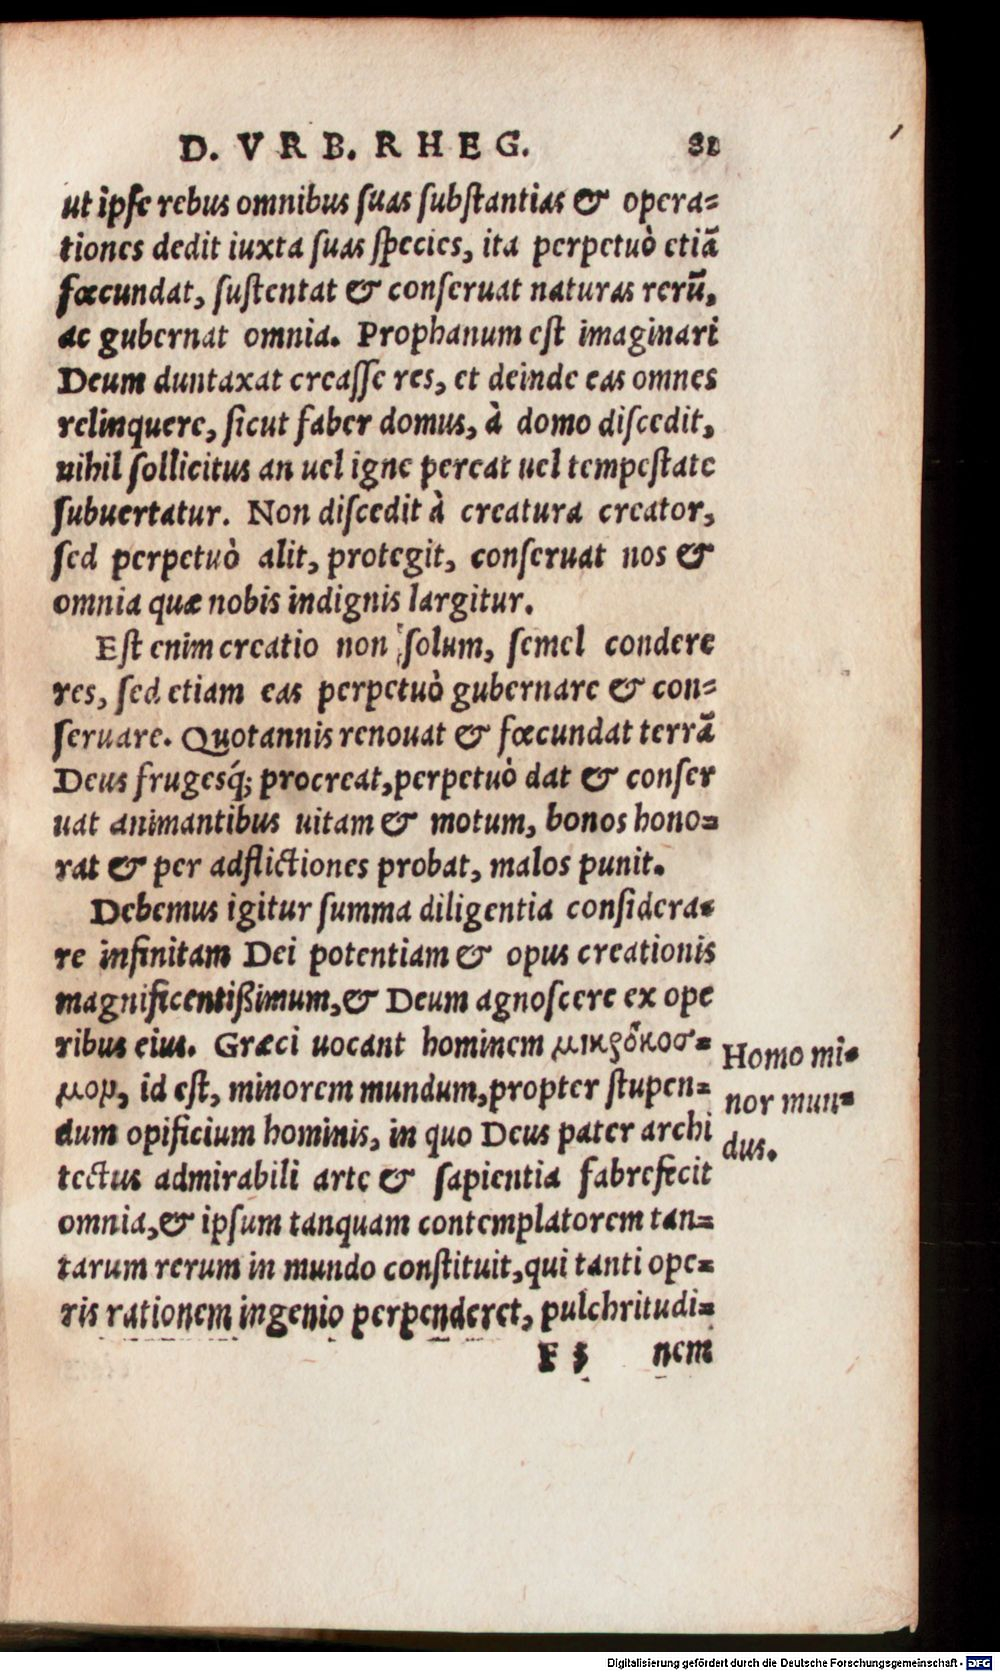 D. VRB. RHEG. 81
ut ipſe rebus omnibus ſuas ſubſtantias & opera-
tiones dedit iuxta ſuas ſpecies, ita perpetuò etiã
fœcundat, ſuſtentat & conſeruat naturas rerũ,
ac gubernat omnia. Prophanum eſt imaginari
Deum duntaxat creaſſe res, et deinde eas omnes
relinquere, ſicut faber domus, à domo diſcedit,
nihil ſollicitus an uel igne pereat uel tempeſtate
ſubuertatur. Non diſcedit à creatura creator,
ſed perpetuò alit, protegit, conſeruat nos &
omnia quæ nobis indignis largitur.
Eſt enim creatio non ſolum, ſemel condere
res, ſed etiam eas perpetuò gubernare & con-
ſeruare. Quotannis renouat & fœcundat terrã
Deus frugesq́; procreat, perpetuò dat & conſer
uat animantibus uitam & motum, bonos hono-
rat & per adflictiones probat, malos punit.
Debemus igitur ſumma diligentia conſidera-
re infinitam Dei potentiam & opus creationis
magnificentißimum, & Deum agnoſcere ex ope
ribus eius. Græci uocant hominem μικρόκοσ-
μον, id eſt, minorem mundum, propter ſtupen-
dum opificium hominis, in quo Deus pater archi
tectus admirabili arte & ſapientia fabrefecit
omnia, & ipſum tanquam contemplatorem tan-
tarum rerum in mundo conſtituit, qui tanti ope-
ris rationem ingenio perpenderet, pulchritudi-
F 5 nem
Homo mi-
nor mun-
dus.
Digitalisierung gefördert durch die Deutsche Forschungsgemeinschaft - DFG